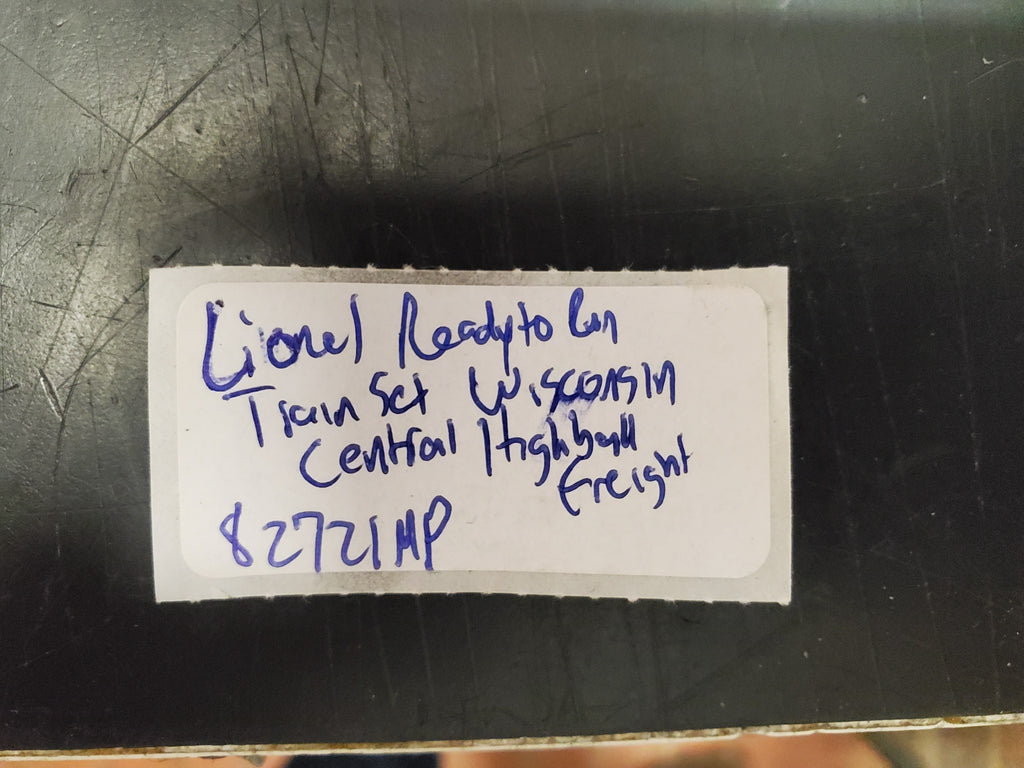 Lionel Ready to Run
Train Set Wisconsin
Central Highball
Freight
82721MP